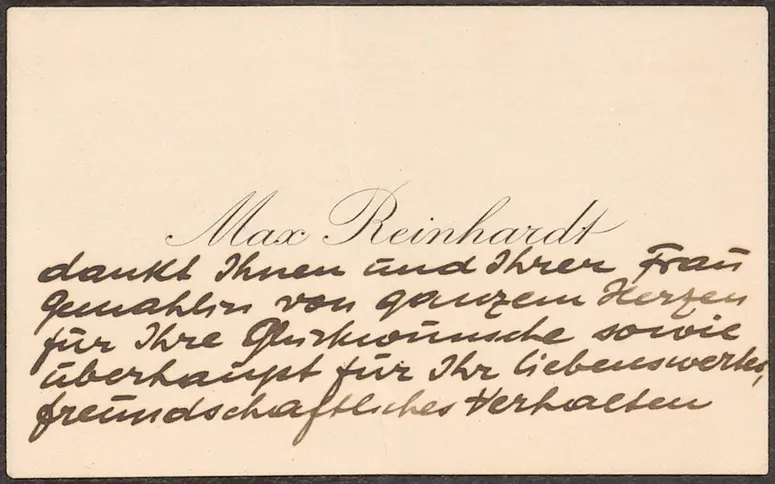 Max Reinhardt
dankt Ihnen und Ihrer Frau
Gemahlin von ganzem Herzen
für Ihre Glückwünsche sowie
überhaupt für Ihr liebenswertes,
freundschaftliches Verhalten